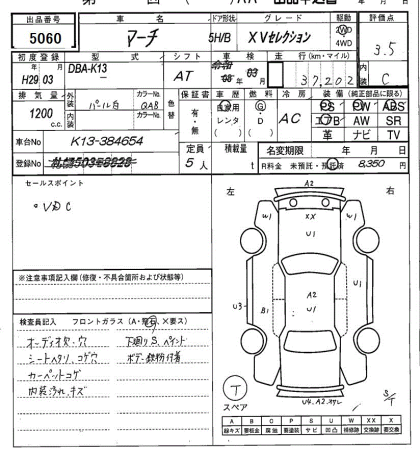 出品番号 車名 ドア形状 グレード 駆動 評価点
5060 マーチ 5H/B XVセレクション 2WD 4WD 3.5
初度登録 型式 シフト 車検 走行(km・マイル) 内装
H29 年 03 月 DBA-K13 AT 03 37,202 C
排気量 外装 カラーNo. 色替 保証書 車歴 燃料 冷房 装備(純正部品に限る)
1200 c.c. パール白 QAB 有・無 自家用 レンタ G D AC PS PW ABS
内装 カラーNo. エアB AW SR
革 ナビ TV
車台No K13-384654 定員 積載量 名変期限 年 月 日
登録No 5人 t R料金 未預託・預託済 8,350円
セールスポイント
・VDC
左 右
A2
W1 XX W1
U1
U3 B1 A2 U1
U1
※注意事項記入欄(修復・不具合箇所および状態等)
検査員記入 フロントガラス(A・飛石、×要ス)
オーディオ欠・穴 下廻りS、ペイント
シートヘタリ、コゲ穴 ボデー鉄粉付着
カーペットコゲ
内装汚れ、キズ
T
スペア
U4.A2.スリレ S/T
A B C P S U W XX X
線キズ 要板金 腐蝕 要塗装 サビ 凹凸 補修跡 交換跡 要交換